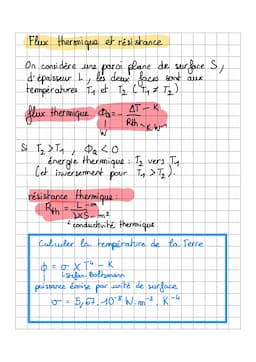 Flux thermique et résistance
On considère une paroi plane de surface S,
d'épaisseur L, les deux faces sont aux
températures T1 et T2 (T1 ≠ T2)
flux thermique Φa = - ΔT - K / Rth - K.W-1
W
Si T2 > T1, Φa < 0
énergie thermique : T2 vers T1
(et inversement pour T1 > T2).
résistance thermique :
Rth = L - m / λ x S - m²
conductivité thermique
Calculer la température de la Terre
ϕ = σ x T⁴ - K
Stefan. Boltzmann
puissance émise par unité de surface
σ = 5,67.10⁻⁸ W.m⁻².K⁻⁴